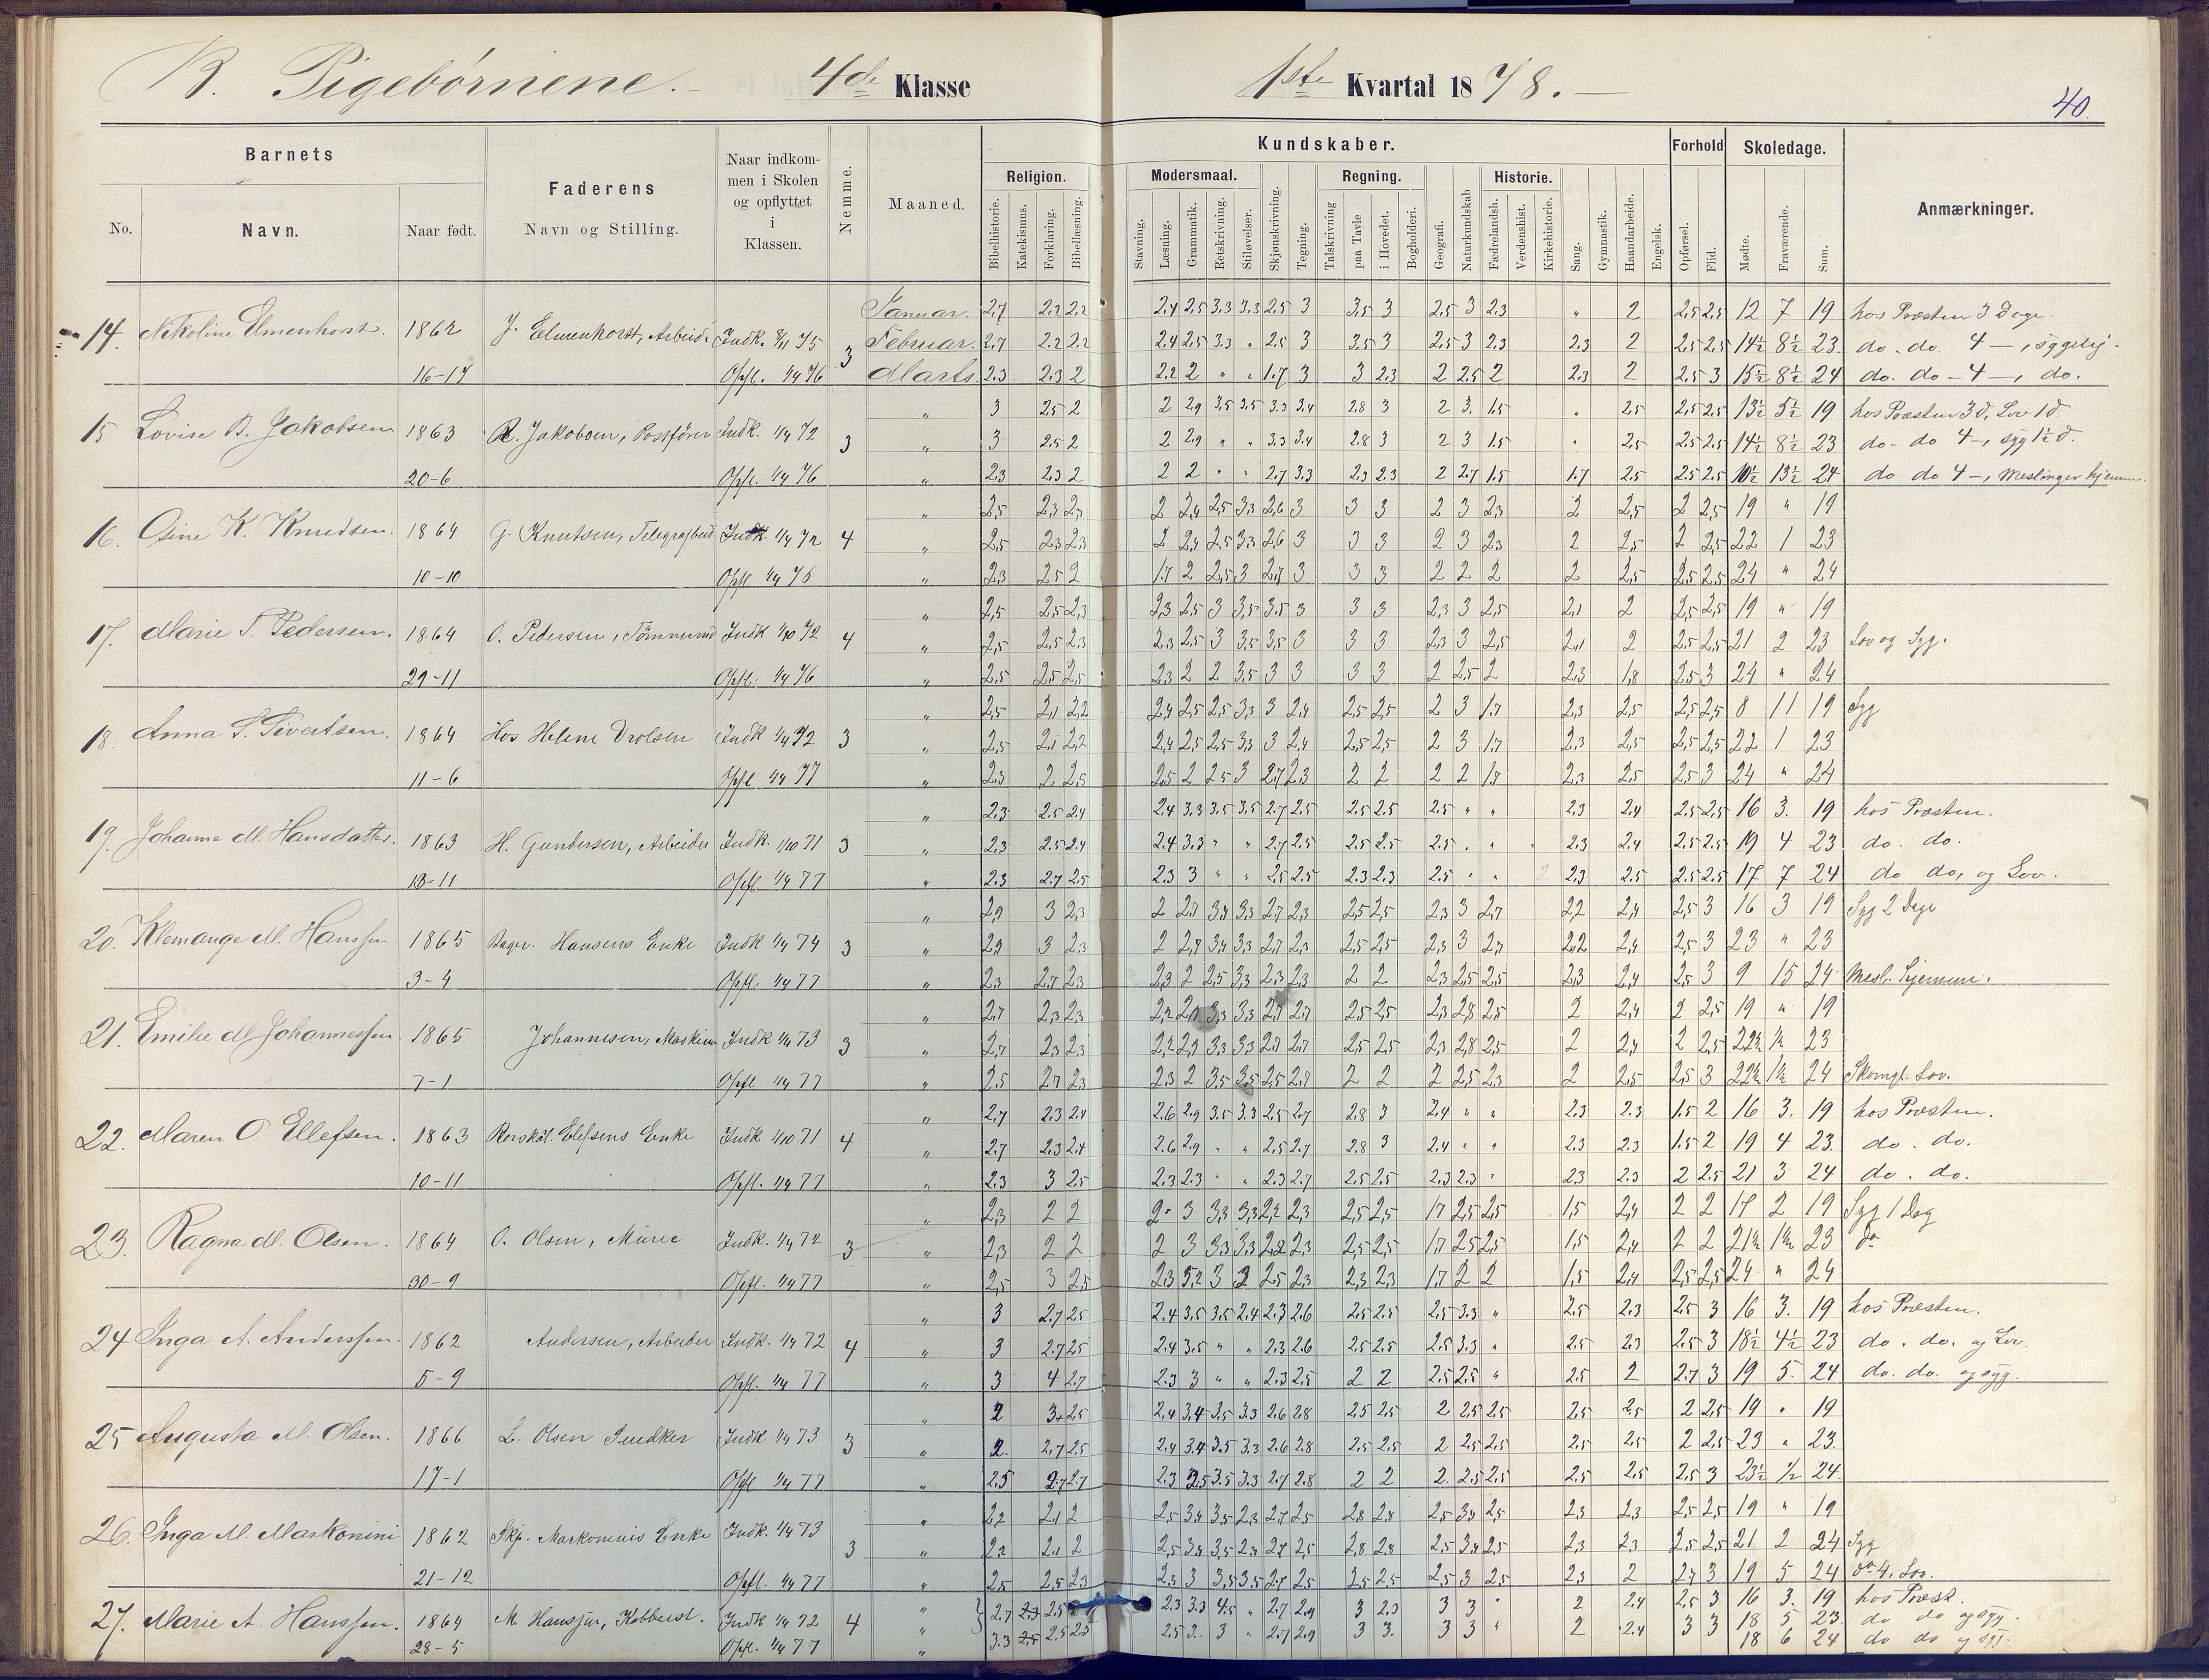 B. Pigebörnene. 4de Klasse 1ste Kvartal 1878. 40.
Barnets
No. Navn. Naar født.
Faderens
Navn og Stilling.
Naar indkom-
men i Skolen
og opflyttet
i
Klassen.
Nemme.
Maaned.
Kundskaber.
Religion. Modersmaal. Regning. Historie.
Bibelhistorie. Katekismus. Forklaring. Bibellæsning. Stavning. Læsning. Grammatik. Retskrivning. Stiløvelser. Skjønskrivning. Tegning. Talskrivning paa Tavle i Hovedet. Bogholderi. Geografi. Naturkundskab Fædrelandsh. Verdenshist. Kirkehistorie. Sang. Gymnastik. Haandarbeide. Engelsk.
Forhold
Opførsel. Flid.
Skoledage.
Mødte. Fraværende. Sum.
Anmærkninger.
Januar. 2.7 2.2 2.2 2.4 2.5 3.3 3.3 2.5 3 3.5 3 2.5 3 2.3 " 2 2.5 2.5 12 7 19 hos Præsten 3 Dage
14. Nikoline Elmenhorst. 1862 J. Elmenhorst, Arbeid. Indk. 8/11 75 3 Februar. 2.7 2.2 2.2 2.4 2.5 3.3 " 2.5 3 3.5 3 2.5 3 2.3 2.3 2 2.5 2.5 14½ 8½ 23. do. do. 4 —, sygelig.
16-17 Opfl. 1/4 76 Marts. 2.3 2.3 2 2.2 2 " " 1.7 3 3 2.3 2 2.5 2 2.3 2 2.5 3 15½ 8½ 24 do. do - 4 —, do.
" 3 2.5 2 2 2.9 3.5 3.5 3.3 3.4 2.8 3 2 3. 1.5 " 2.5 2.5 2.5 13½ 5½ 19 hos Præsten 3 d, Lov 1 d.
15 Lovise B. Jakobsen 1863 R. Jakobsen, Postfören Indk. 1/4 72 3 " 3 2.5 2 2 2.9 " " 3.3 3.4 2.8 3 2 3 1.5 " 2.5 2.5 2.5 14½ 8½ 23 do - do 4 —, syg 1½ d.
20-6 Opfl. 1/4 76 " 2.3 2.3 2 2 2 " " 2.7 3.3 2.3 2.3 2 2.7 1.5 1.7 2.5 2.5 2.5 10½ 13½ 24 do do 4 —, Meslinger hjemme.
" 2,5 2,3 2,3 2 2,4 2,5 3,3 2,6 3 3 3 2 3 2,3 2 2,5 2 2,5 19 " 19
16. Osine K. Knudsen. 1864 G. Knutsen, Telegrafbud Indk. 1/4 72 4 " 2,5 2,3 2,3 2 2,4 2,5 3,3 2,6 3 3 3 2 3 2,3 2 2,5 2 2,5 22 1 23
10-10 Opfl 1/4 76 " 2,3 2,5 2 1,7 2 2,5 3 2,7 3 3 3 2 2 2 2 2,5 2,5 2,5 24 " 24
" 2,5 2,5 2,3 2,3 2,5 3 3,5 3,5 3 3 3 2,3 3 2,5 2,1 2 2,5 2,5 19 " 19
17. Marie T. Pedersen. 1864 O. Pedersen, Tömmermd Indk 1/10 72 4 " 2,5 2,5 2,3 2,3 2,5 3 3,5 3,5 3 3 3 2,3 3 2,5 2,1 2 2,5 2,5 21 2 23 Lov og Syg.
29-11 Opfl. 1/4 76 " 2,5 2,5 2,5 2,3 2 2 3,5 3 3 3 3 2 2,5 2 2,3 1,8 2,5 3 24 " 24
" 2,5 2,1 2,2 2,4 2,5 2,5 3,3 3 2,4 2,5 2,5 2 3 1,7 2,3 2,5 2,5 2,5 8 11 19 Syg
18. Anna S. Sivertsen. 1864 Hos Helene Vrolsen Indk 1/4 72 3 " 2,5 2,1 2,2 2,4 2,5 2,5 3,3 3 2,4 2,5 2,5 2 3 1,7 2,3 2,5 2,5 2,5 22 1 23
11-6 Opfl 1/4 77 " 2,3 2 2,5 2,5 2 2,5 3 2,7 2,3 2 2 2 2 1,7 2,3 2,5 2,5 3 24 " 24
" 2.3 2.5 2.4 2.4 3.3 3.5 3.5 2.7 2.5 2.5 2.5 2.5 " " 2.3 2.4 2.5 2.5 16 3. 19 hos Præsten.
19. Johanne M. Hansdatter. 1863 H. Gundersen, Arbeider Indk. 1/10 71 3 " 2.3 2.5 2.4 2.4 3.3 " " 2.7 2.5 2.5 2.5 2.5 " " 2.3 2.4 2.5 2.5 19 4 23 do. do.
18-11 Opfl 1/4 77 " 2.3 2.7 2.5 2.3 3 " " 2.5 2.5 2.3 2.3 2.5 " " 2.3 2.5 2.5 2.5 17 7 24 do do, og Lov.
" 2,9 3 2,3 2 2,7 3,4 3,3 2,7 2,3 2,5 2,5 2,3 3 2,7 2,2 2,4 2,5 3 16 3 19 Syg 2 Dage
20. Klemange M. Hanssen 1865 Bager. Hansens Enke Indk 1/4 74 3 " 2,9 3 2,3 2 2,7 3,4 3,3 2,7 2,3 2,5 2,5 2,3 3 2,7 2,2 2,4 2,5 3 23 " 23
3-4 Opfl. 1/4 77 " 2,3 2,7 2,3 2,3 2 2,5 3,3 2,3 2,3 2 2 2,3 2,5 2,5 2,3 2,4 2,5 3 9 15 24 Mesl. hjemme.
" 2,7 2,3 2,3 2,2 2,9 3,3 3,3 2,7 2,7 2,5 2,5 2,3 2,8 2,5 2 2,4 2 2,5 19 " 19
21. Emilie M. Johannessen. 1865 Johannesen, Maskin Indk 1/4 73 3 " 2,7 2,3 2,3 2,2 2,9 3,3 3,3 2,7 2,7 2,5 2,5 2,3 2,8 2,5 2 2,4 2 2,5 22½ ½ 23
7-1 Opfl 1/4 77 " 2,5 2,7 2,3 2,3 2 3,5 3,5 2,5 2,7 2 2 2 2,5 2,3 2 2,5 2,5 3 22½ 1½ 24 Skomgl. Lov.
" 2.7 2.3 2.4 2.6 2.9 3.5 3.3 2.5 2.7 2.8 3 2.4 " " 2.3 2.3 1.5 2 16 3. 19 hos Præsten.
22. Maren O. Ellefsen. 1863 Elefsens Enke Indk 1/10 71 4 " 2.7 2.3 2.4 2.6 2.9 " " 2.5 2.7 2.8 3 2.4 " " 2.3 2.3 1.5 2 19 4 23. do. do.
10-11 Opfl. 1/4 77 " 2.3 3 2.5 2.3 2.3 " " 2.3 2.7 2.5 2.5 2.3 2.3 " 2.3 2.3 2 2.5 21 3 24 do. do.
" 2,3 2 2 2 3 3,3 3,3 2,2 2,3 2,5 2,5 1,7 2,5 2,5 1,5 2,4 2 2 17 2 19 Syg 1 Dag
23. Ragna M. Olsen. 1864 O. Olsen, Murer Indk. 1/4 72 3 " 2,3 2 2 2 3 3,3 3,3 2,2 2,3 2,5 2,5 1,7 2,5 2,5 1,5 2,4 2 2 21½ 1½ 23 do
30-9 Opfl. 1/4 77 " 2,5 3 2,5 2,3 3,2 3 2 2,5 2,3 2,3 2,3 1,7 2 2 1,5 2,4 2,5 2,5 24 " 24
" 3 2.7 2.5 2.4 3.5 3.5 2.4 2.3 2.6 2.5 2.5 2.5 3.3 " 2.5 2.3 2.5 3 16 3. 19 hos Præsten.
24 Inga A. Anderssen. 1862 Andersen, Arbeider Indk. 1/4 72 4 " 3 2.7 2.5 2.4 3.5 " " 2.3 2.6 2.5 2.5 2.5 3.3 " 2.5 2.3 2.5 3 18½ 4½ 23 do. do. og Lov.
5-9 Opfl. 1/4 77 " 3 4 2.7 2.3 3 " " 2.3 2.5 2 2 2.5 2.5 " 2.5 2 2.7 3 19 5. 24 do. do. og syg.
" 2 3. 2.5 2.4 3.4 3.5 3.3 2.6 2.8 2.5 2.5 2 2.5 2.5 2.5 2.5 2 2.5 19 " 19
25 Augusta M. Olsen. 1866 L. Olsen Snedker Indk 1/4 73 3 " 2. 2.7 2.5 2.4 3.4 3.5 3.3 2.6 2.8 2.5 2.5 2 2.5 2.5 2.5 2.5 2 2.5 23 " 23.
17-1 Opfl 1/4 77 " 2.5 2.7 2.7 2.3 2.5 3.5 3.3 2.7 2.8 2 2 2. 2.5 2.5 2.5 2.5 2.5 3 23½ ½ 24.
" 2,2 2,1 2 2,5 3,4 3,5 2,3 2,7 2,5 2,8 2,8 2,5 3,4 2,5 2,3 2,3 2,5 2,5 19 " 19
26. Inga M. Markonini 1862 Skp. Markominis Enke Indk. 1/4 73 3 " 2,2 2,1 2 2,5 3,4 3,5 2,3 2,7 2,5 2,8 2,8 2,5 3,4 2,5 2,3 2,3 2,5 2,5 21 2 24 Syg
21-12 Opfl. 1/4 77 " 2,5 2,5 2,3 2,3 3 3,5 3,5 2,7 2,5 2,5 2,5 2,5 3 2,5 2,3 2 2,7 3 19 5 24 do 4, Lov.
" 2.7 2.3 2.5 2.3 3.3 4.5 " 2.7 2.9 3 2.3 3 3 " 2 2.4 2.5 3 16 3. 19 hos Præst.
27. Marie A. Hanssen. 1864 M. Hanssen, Kobberst. Indk 1/4 72 4 " 3.3 2.5 2.5 2.3 2.5 3. 3 " 2.7 2.9 3 3. 3 3 " 2 2.4 3 3 18 5 23 do do og syg.
28-5 Opfl. 1/4 77 " 18 6 24 do do og syg.